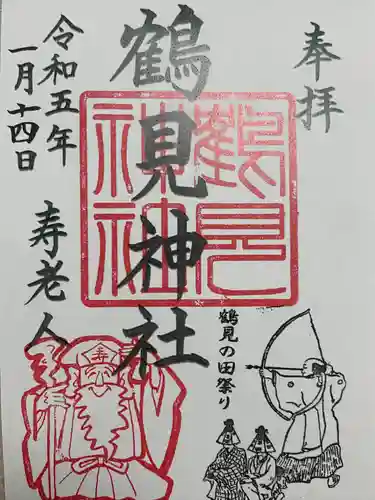 奉拝
鶴見神社
鶴見神社
令和五年
一月十四日
寿老人
寿
鶴見の田祭り